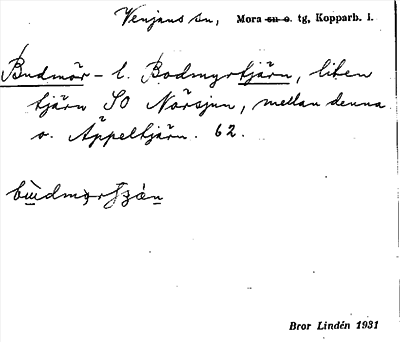 Venjans sn, Mora sn o. tg, Kopparb. l.
Budmör- l. Bodmyrtjärn, liten
tjärn SO Nörsjun, mellan denna
o. Äppeltjärn. 62.
Bror Lindén 1931